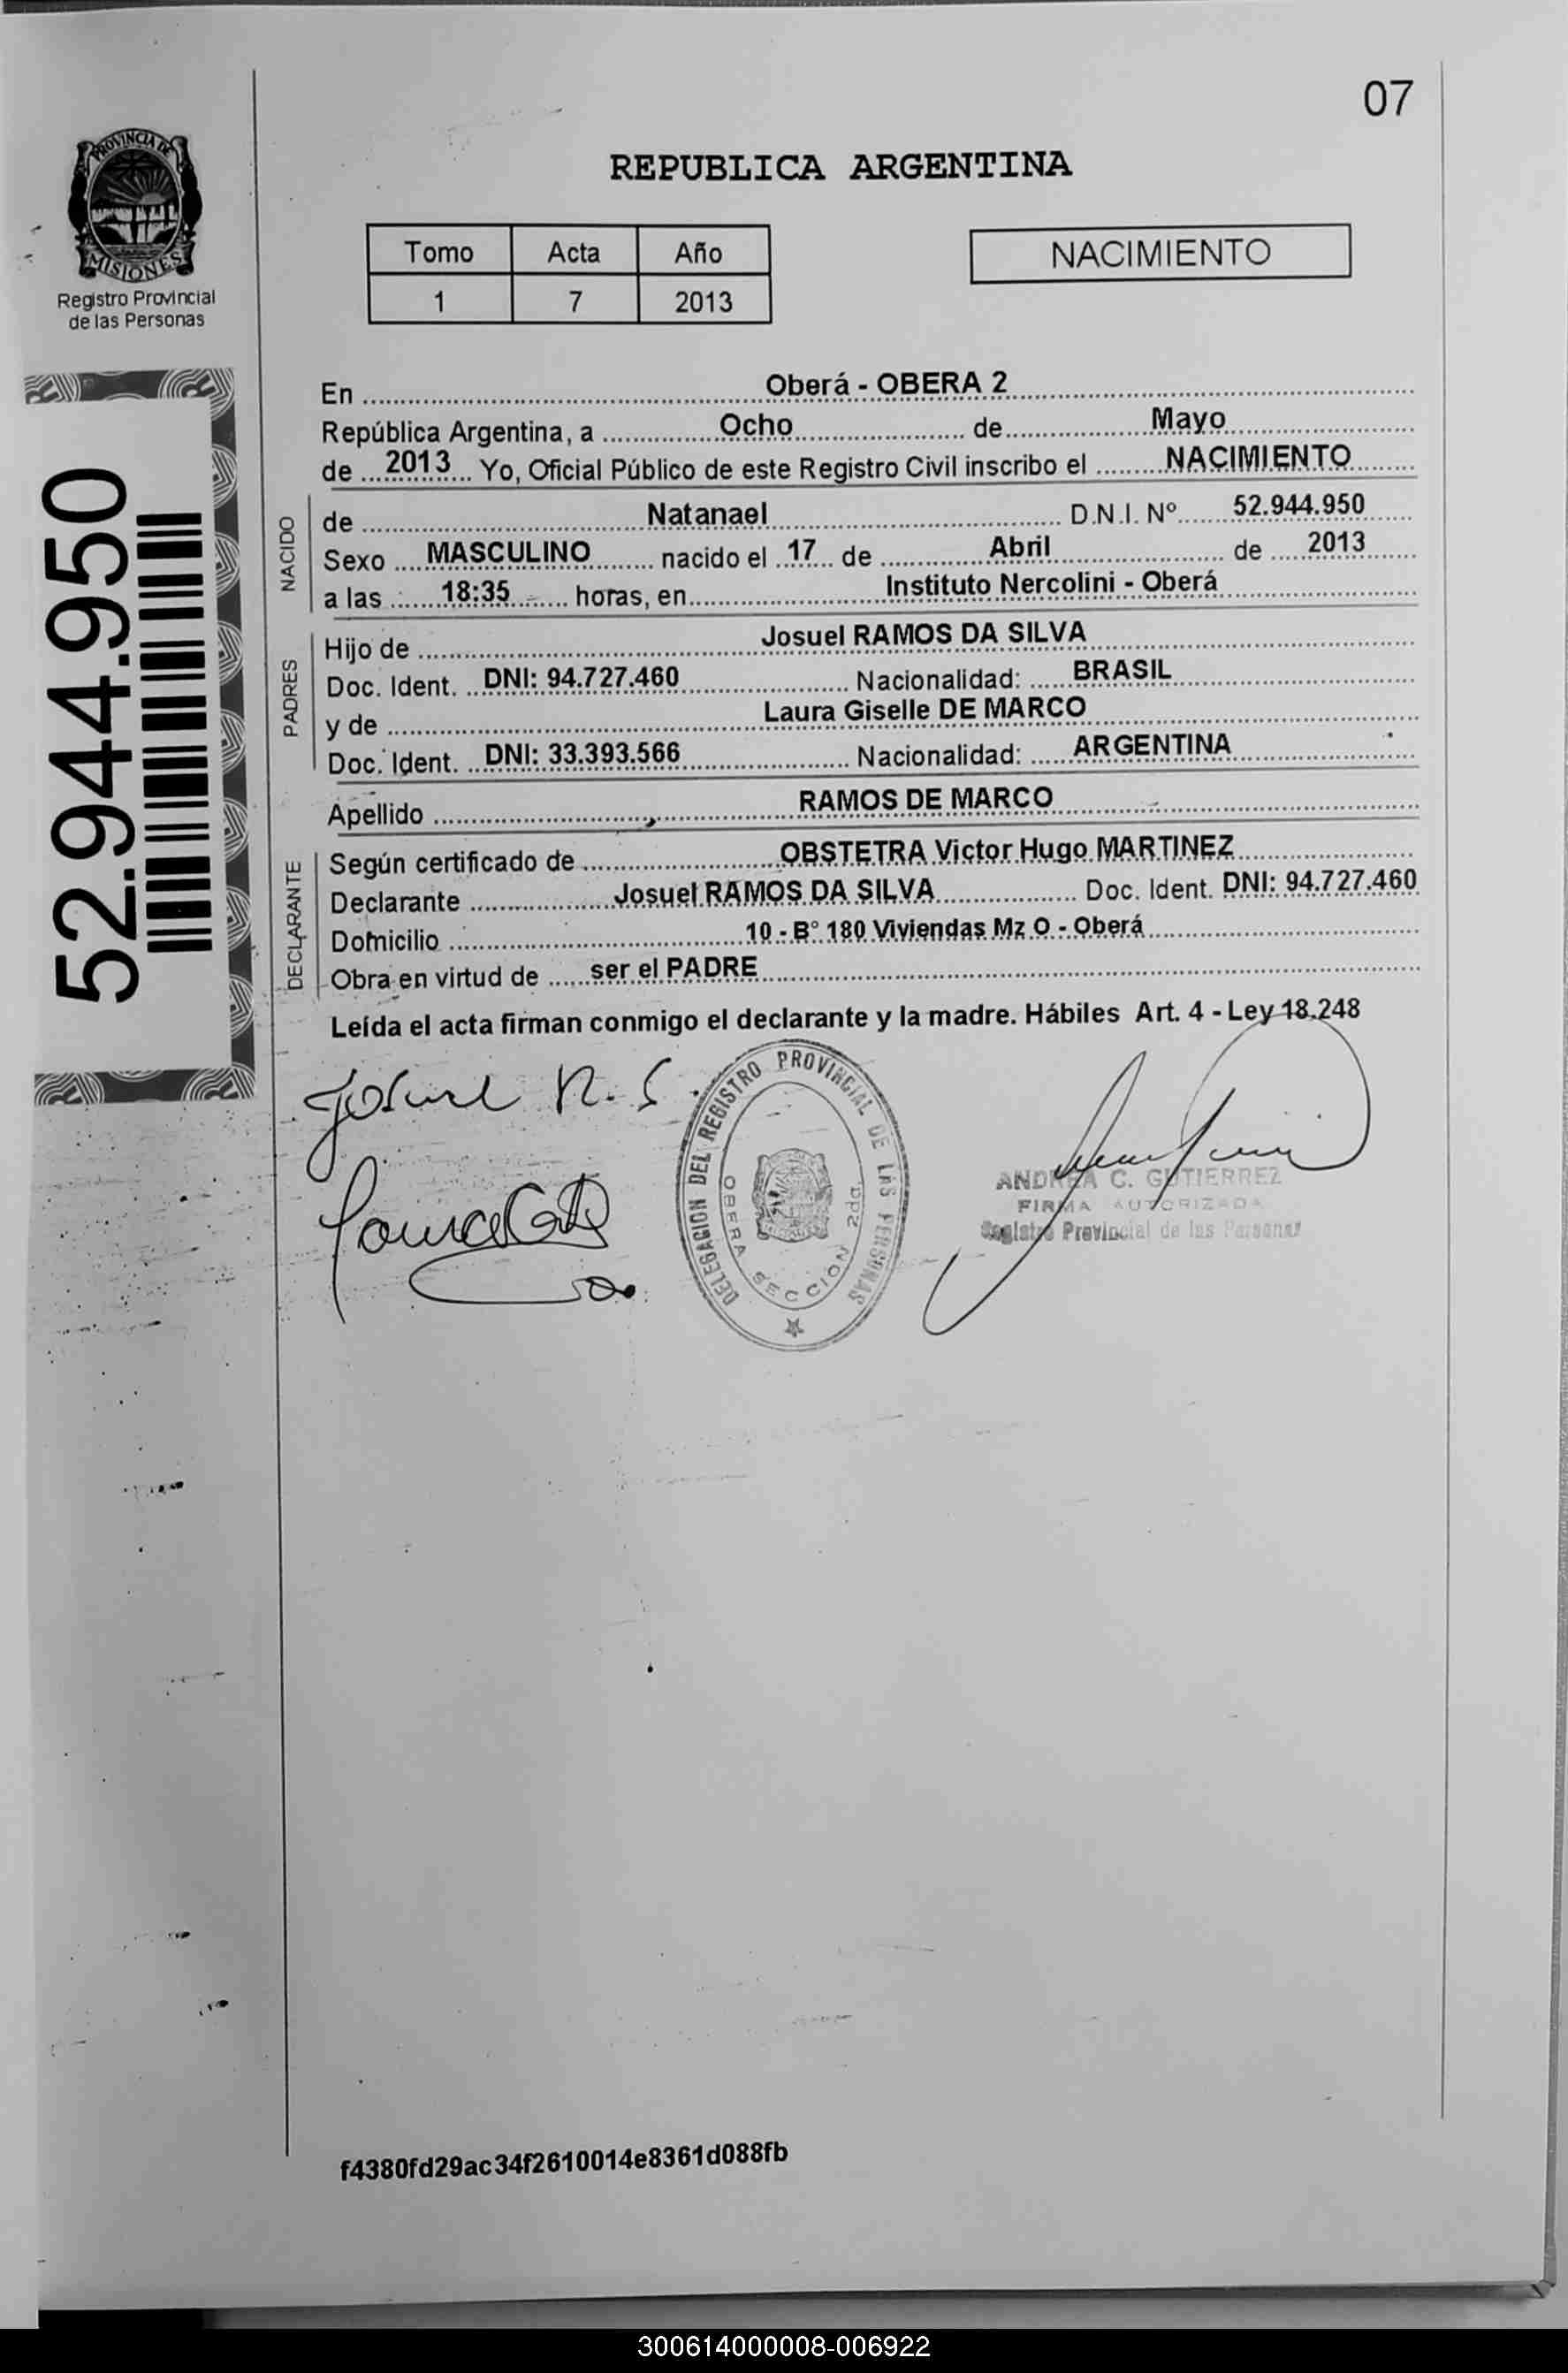 07
PROVINCIA DE
MISIONES
Registro Provincial
de las Personas
REPUBLICA ARGENTINA
Tomo Acta Año
1 7 2013
NACIMIENTO
52.944.950
En Oberá - OBERA 2
República Argentina, a Ocho de Mayo
de 2013 Yo, Oficial Público de este Registro Civil inscribo el NACIMIENTO
NACIDO
de Natanael D.N.I. Nº 52.944.950
Sexo MASCULINO nacido el 17 de Abril de 2013
a las 18:35 horas, en Instituto Nercolini - Oberá
PADRES
Hijo de Josuel RAMOS DA SILVA
Doc. Ident. DNI: 94.727.460 Nacionalidad: BRASIL
y de Laura Giselle DE MARCO
Doc. Ident. DNI: 33.393.566 Nacionalidad: ARGENTINA
Apellido RAMOS DE MARCO
DECLARANTE
Según certificado de OBSTETRA Victor Hugo MARTINEZ
Declarante Josuel RAMOS DA SILVA Doc. Ident. DNI: 94.727.460
Domicilio 10 - B° 180 Viviendas Mz O - Oberá
Obra en virtud de ser el PADRE
Leída el acta firman conmigo el declarante y la madre. Hábiles Art. 4 - Ley 18.248
Josuel R. S.
DELEGACION DEL REGISTRO PROVINCIAL DE LAS PERSONAS
OBERA SECCION 2da.
ANDREA C. GUTIERREZ
FIRMA AUTORIZADA
Registro Provincial de las Personas
f4380fd29ac34f2610014e8361d088fb
300614000008-006922